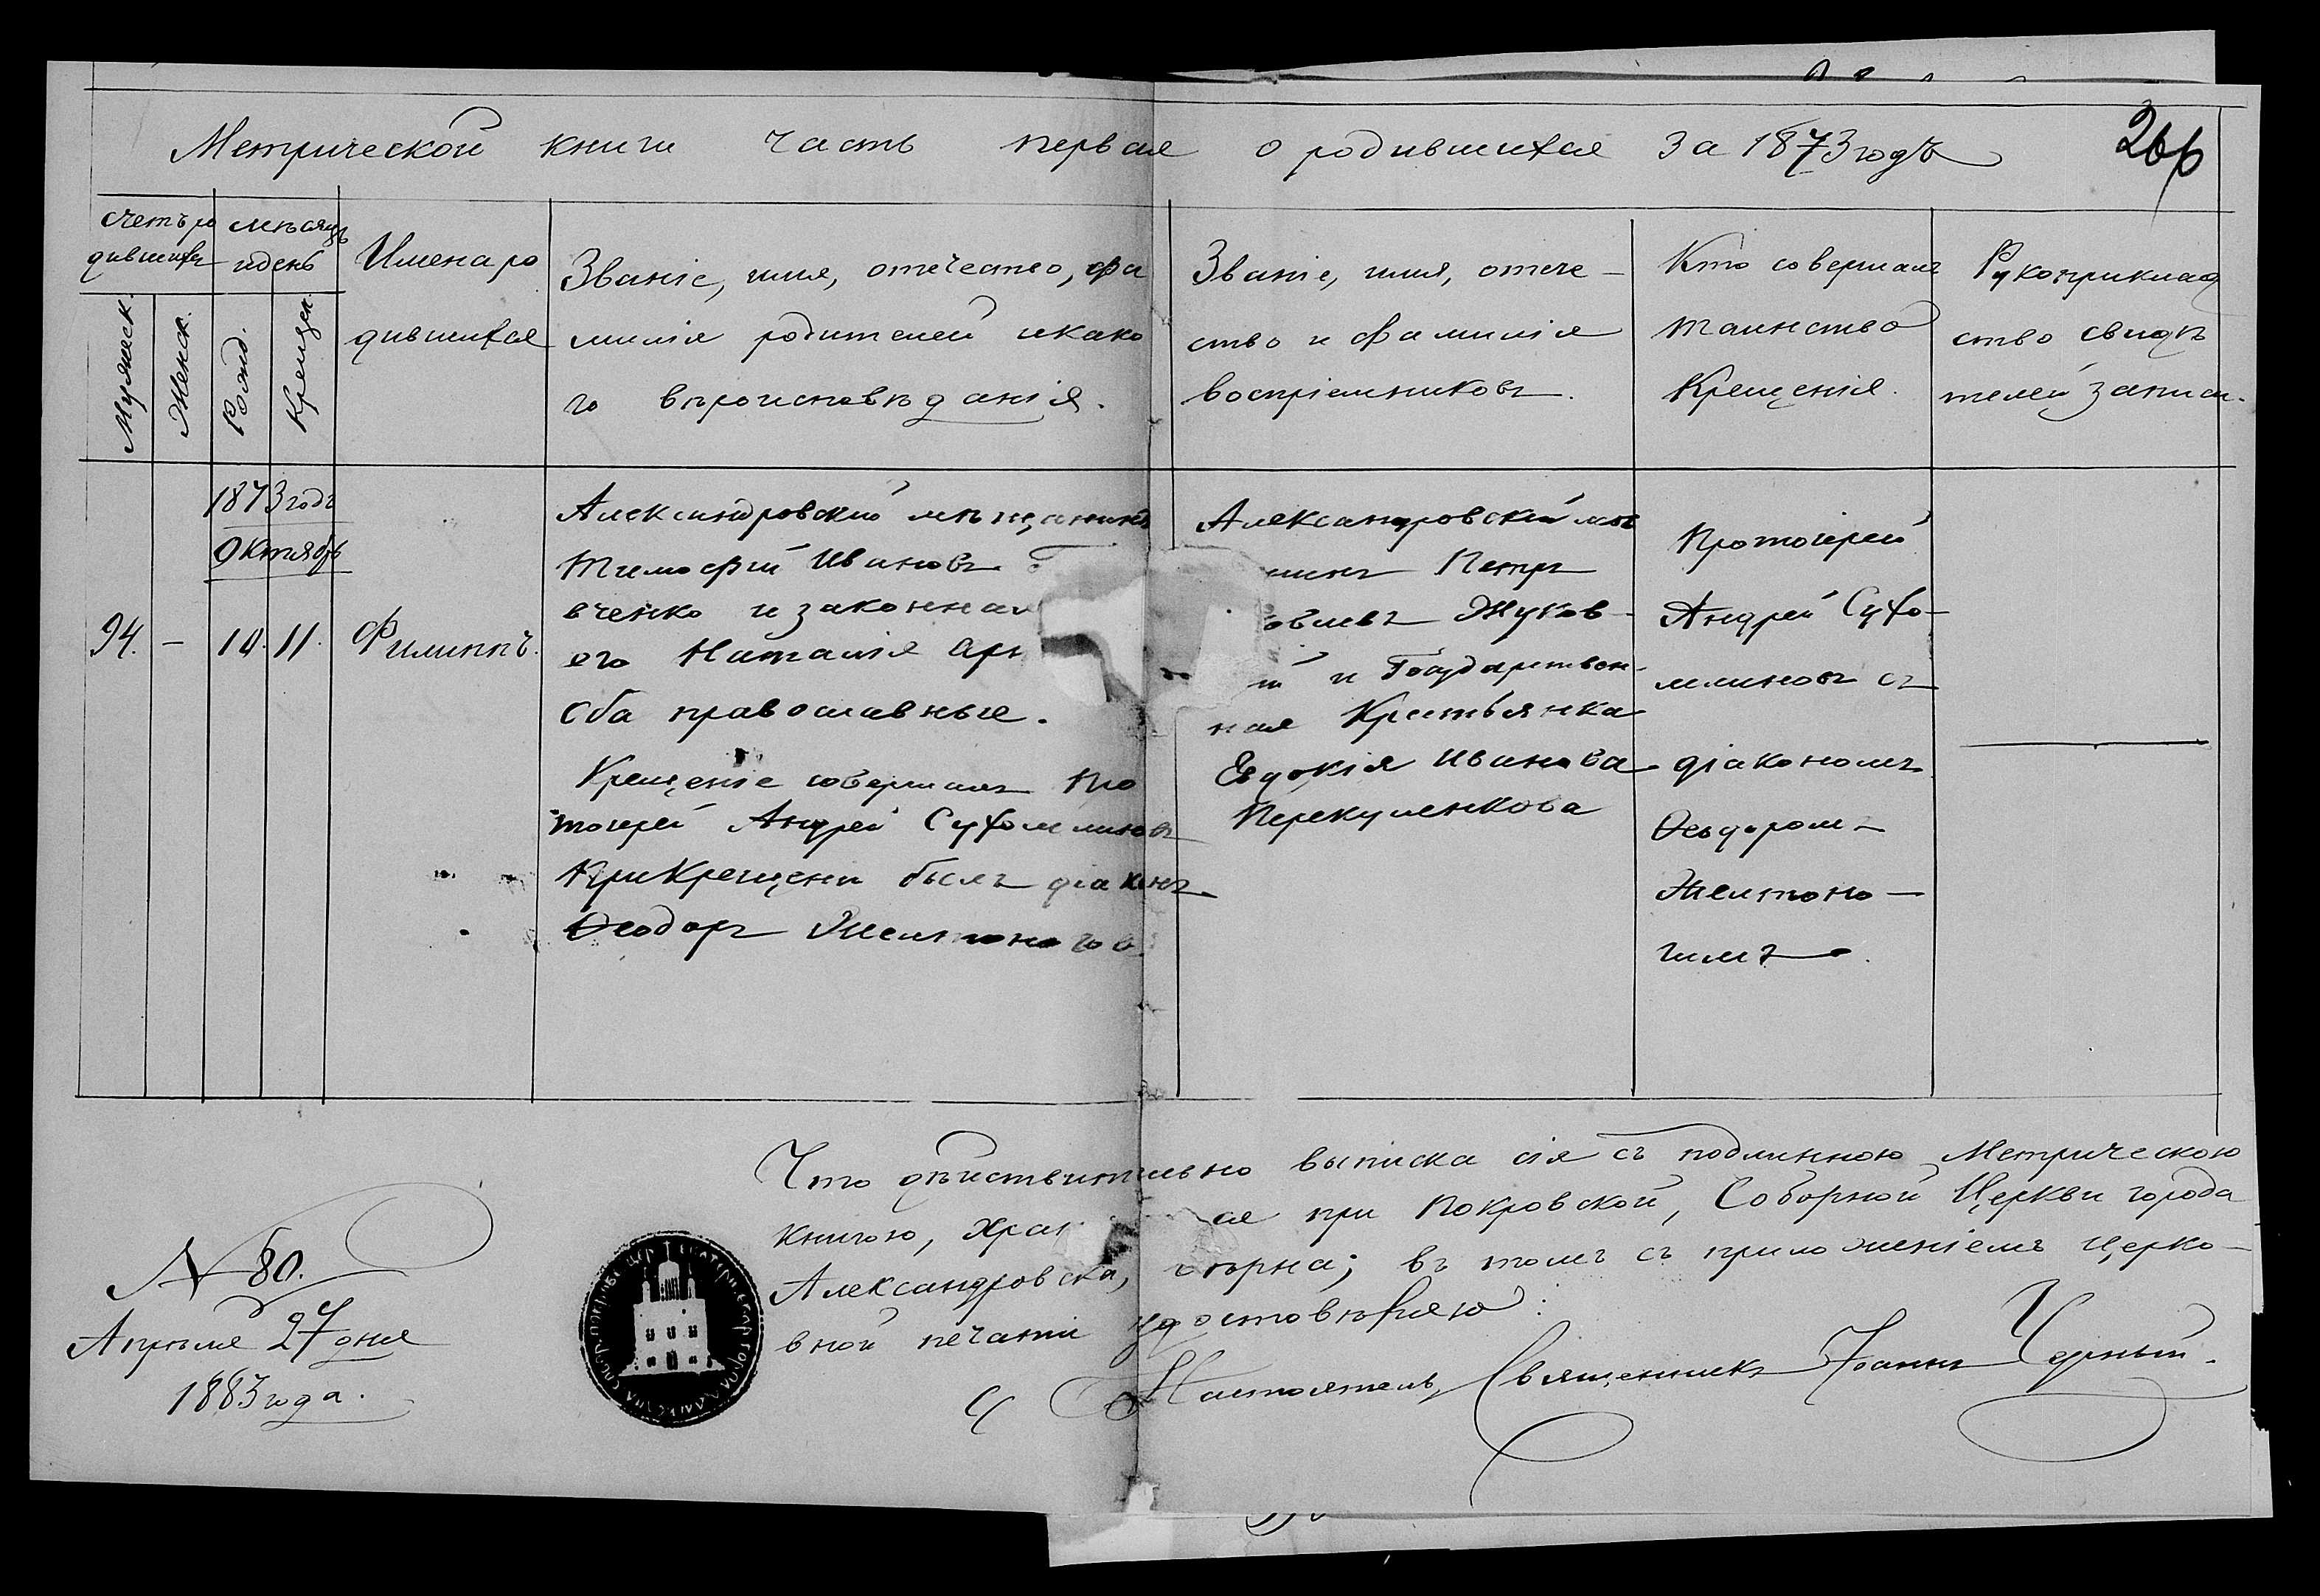 Метрической книги часть первая о родившихся за 1873 годъ
266
счетъ ро
дившихся
мѣсяцъ
и день
Мужеск.
Женск.
Рожд.
Крещен.
Имена ро
дившихся
Званіе, имя, отечество, фа
милія родителей и како
го вѣроисповѣданія.
Званіе, имя, отече-
ство и фамилія
воспріемниковъ.
Кто совершалъ
таинство
Крещенія.
Рукоприклад
ство свидѣ
телей записи.
1873 годъ
Октябрь
94. - 10. 11.
Филиппъ.
Александровскій мѣщанинъ
Тимофій Ивановъ
вченко и законная
его Наталія
Оба православные.
Крещеніе совершалъ Про
тоіерей Андрей Сухомлиновъ
При Крещеніи былъ діаконъ
Ѳеодоръ Желтоноговъ
Александровскій мѣ
щинъ Петръ
овлевъ Жуков-
ій и Государствен-
ная Крестьянка
Евдокія Иванова
Перекупенкова
Протоіерей
Андрей Сухо-
млиновъ съ
діакономъ
Ѳеодоромъ
Желтоно-
гимъ
Что дѣйствительно выписка сія съ подлинною Метрическою
книгою, хран ся при Покровской, Соборной Церкви города
Александровска, вѣрна; въ томъ съ приложеніемъ церко-
вной печати удостовѣряю:
Настоятель, Священникъ Іоаннъ Черный.
№ 80.
Апрѣля 27 дня
1883 года.